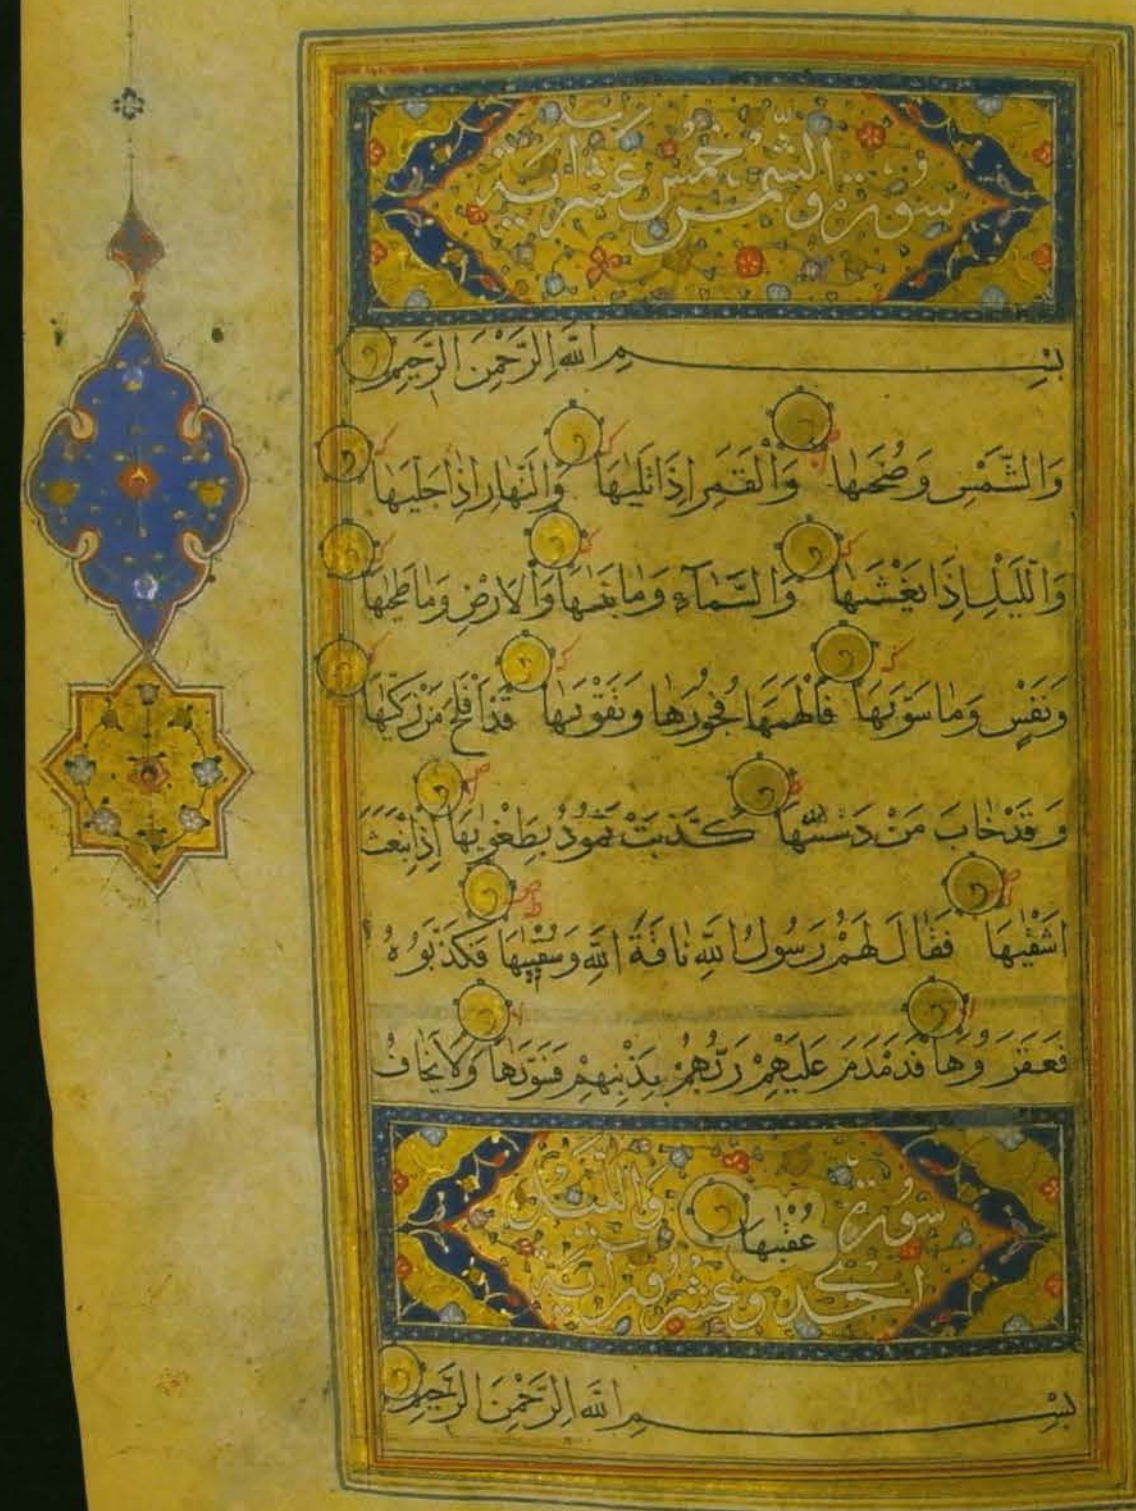 سورة والشمس خمس عشر اية
بسم الله الرحمن الرحيم
وَالشَّمْسِ وَضُحَيٰهَا وَالْقَمَرِ إِذَا تَلَيٰهَا وَالنَّهَارِ إِذَا جَلَّيٰهَا
وَاللَّيْلِ إِذَا يَغْشَيٰهَا وَالسَّمَآءِ وَمَا بَنَيٰهَا وَالْاَرْضِ وَمَا طَحَيٰهَا
وَنَفْسٍ وَمَا سَوَّيٰهَا فَأَلْهَمَهَا فُجُورَهَا وَتَقْوَيٰهَا قَدْ أَفْلَحَ مَنْ زَكَّيٰهَا
وَقَدْ خَابَ مَنْ دَسَّيٰهَا كَذَّبَتْ ثَمُودُ بِطَغْوَيٰهَا إِذِ انْبَعَثَ
اَشْقَيٰهَا فَقَالَ لَهُمْ رَسُولُ اللَّهِ نَاقَةَ اللَّهِ وَسُقْيٰهَا فَكَذَّبُوهُ
فَعَقَرُوهَا فَدَمْدَمَ عَلَيْهِمْ رَبُّهُمْ بِذَنْبِهِمْ فَسَوَّيٰهَا وَلَا يَخَافُ
سورة عُقْبٰيهَا والليل
احدى وعشرون اية
بسم الله الرحمن الرحيم